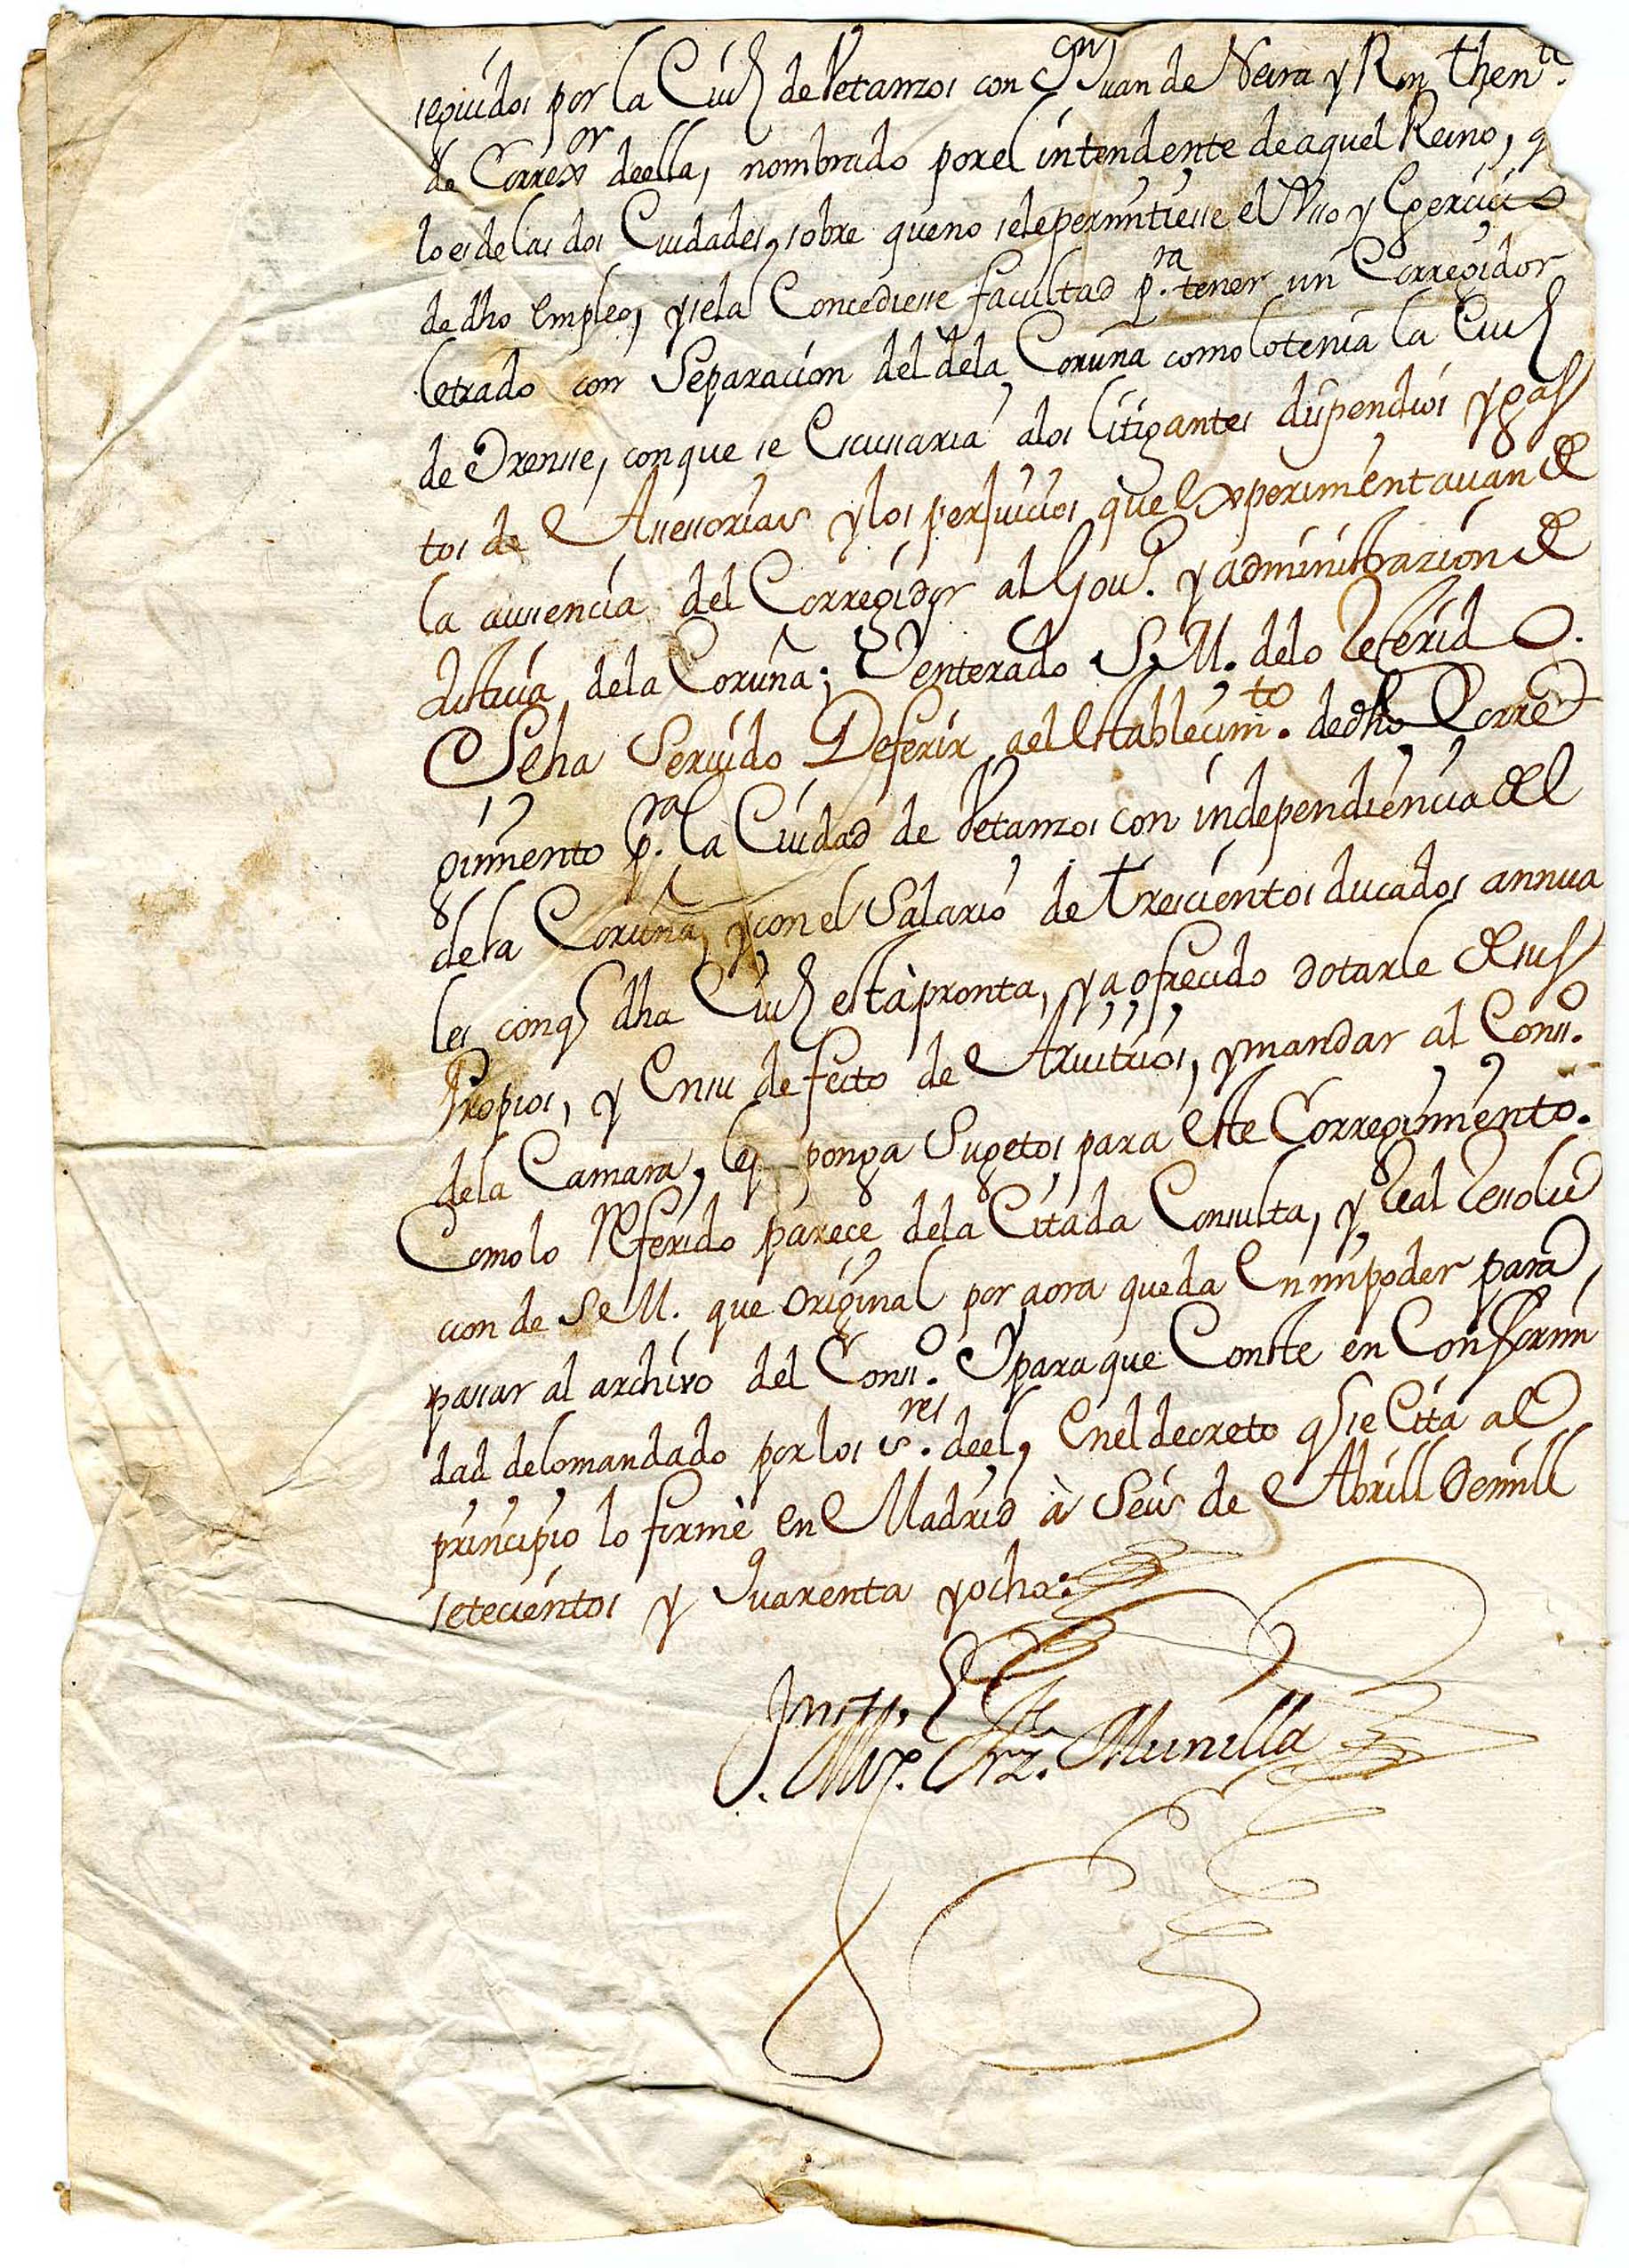 seguidos por la Ciud de Vetanzos con Dn Juan de Neira y Rn Thente.
de Correxor deella, nombrado porel intendente de aquel Reino, q
lo es de las dos Ciudades, sobre queno sele permitiesse el Vsso y Exercicio
de dho empleo, y sela Concediesse facultad pra. tener un Corregidor
letrado con Separacion del dela Coruña como lotenia la Ciud
de Orense, conque se Escusaria alos litigantes dispendios y gas
tos de Assesorias y los perjuicios que Experimentauan de
la ausencia del Corregidor al Gouo. y administrazion de
Justicia dela Coruña; Y enterado S. M. delo referido.
Se ha Seruido Deferir ael establecimto. de dho Corre
gimiento pra. la Ciudad de Vetanzos con independiencia del
dela Coruña, y con el Salario de trescientos ducados annua
les conq dha Ciud està pronta, y a ofrecido dotarle de sus
Propios, y Ensu defecto de Arvitrios, y mandar al Conso.
dela Camara, le q ponga Sugetos para este Corregimiento.
Como lo Referido parece dela Citada Consulta, y Real resolu
cion de S M. que original por aora queda En mi poder para
passar al archivo del Conso. Y para que Conste en Conformi
dad delo mandado por los Sres. deel, Enel decreto q se Cita al
principio lo firmè en Madrid à Seis de Abrill de mill
setecientos y Quarenta y ocho.
Dn. Migl. Frz. Munilla